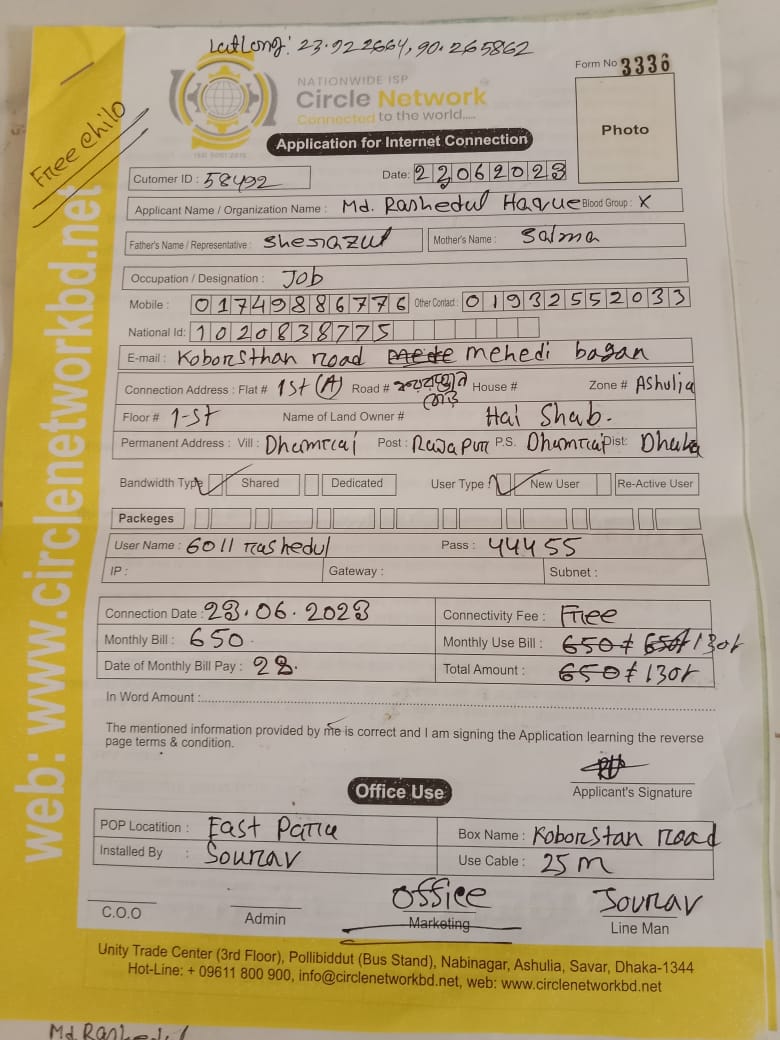 LatLong: 23.922664, 90.265862
Form No 3336
NATIONWIDE ISP
Circle Network
Connected to the world.....
ISO 9001:2015
Photo
Free Chilo
Application for Internet Connection
Cutomer ID : 58492
Date: 22062023
Applicant Name / Organization Name : Md. Rashedul Haque Blood Group : X
Father's Name / Representative : Sherazul Mother's Name : Salma
Occupation / Designation : Job
Mobile : 01749886776 Other Contact : 01932552033
National Id: 1020838775
E-mail : Koborsthan road mehedi bagan
Connection Address : Flat # 1st (A) Road # House # Zone # Ashulia
Floor # 1-st Name of Land Owner # Hai Shab.
Permanent Address : Vill : Dhamrai Post : Rajapur P.S. Dhamrai Dist: Dhaka
Bandwidth Type Shared Dedicated User Type : New User Re-Active User
Packeges
User Name : 6011 rashedul Pass : 44455
IP : Gateway : Subnet :
Connection Date : 23.06.2023 Connectivity Fee : Free
Monthly Bill : 650 Monthly Use Bill : 650 650 130
Date of Monthly Bill Pay : 28. Total Amount : 650 130
In Word Amount :
The mentioned information provided by me is correct and I am signing the Application learning the reverse
page terms & condition.
Applicant's Signature
Office Use
POP Locatition : East Para Box Name : Koborstan road
Installed By : Sourav Use Cable : 25 m
Office Sourav
C.O.O Admin Marketing Line Man
Unity Trade Center (3rd Floor), Pollibiddut (Bus Stand), Nabinagar, Ashulia, Savar, Dhaka-1344
Hot-Line: + 09611 800 900, info@circlenetworkbd.net, web: www.circlenetworkbd.net
web: www.circlenetworkbd.net
Md. Rashedul